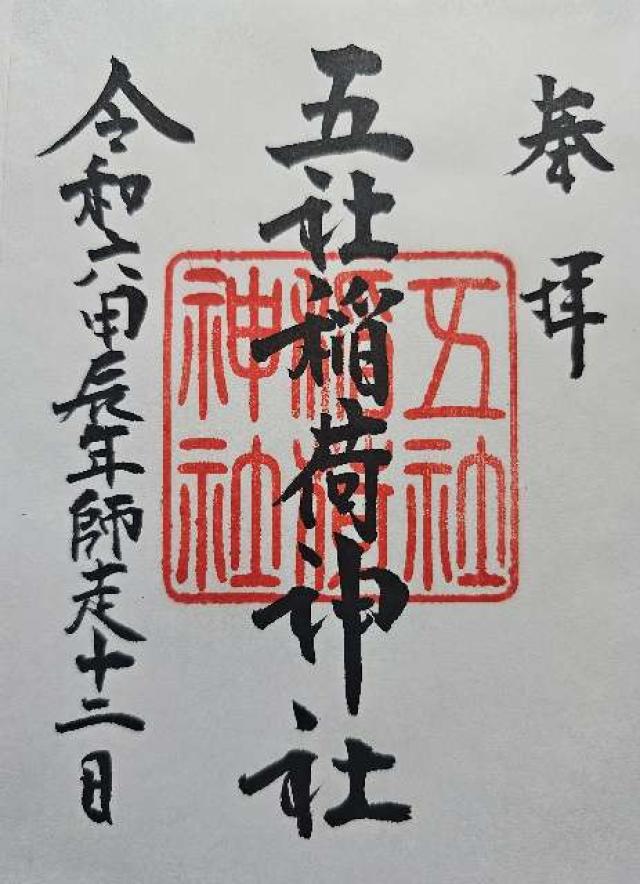 奉拝
五社稲荷神社
五社
稲荷
神社
令和六甲辰年師走十二日